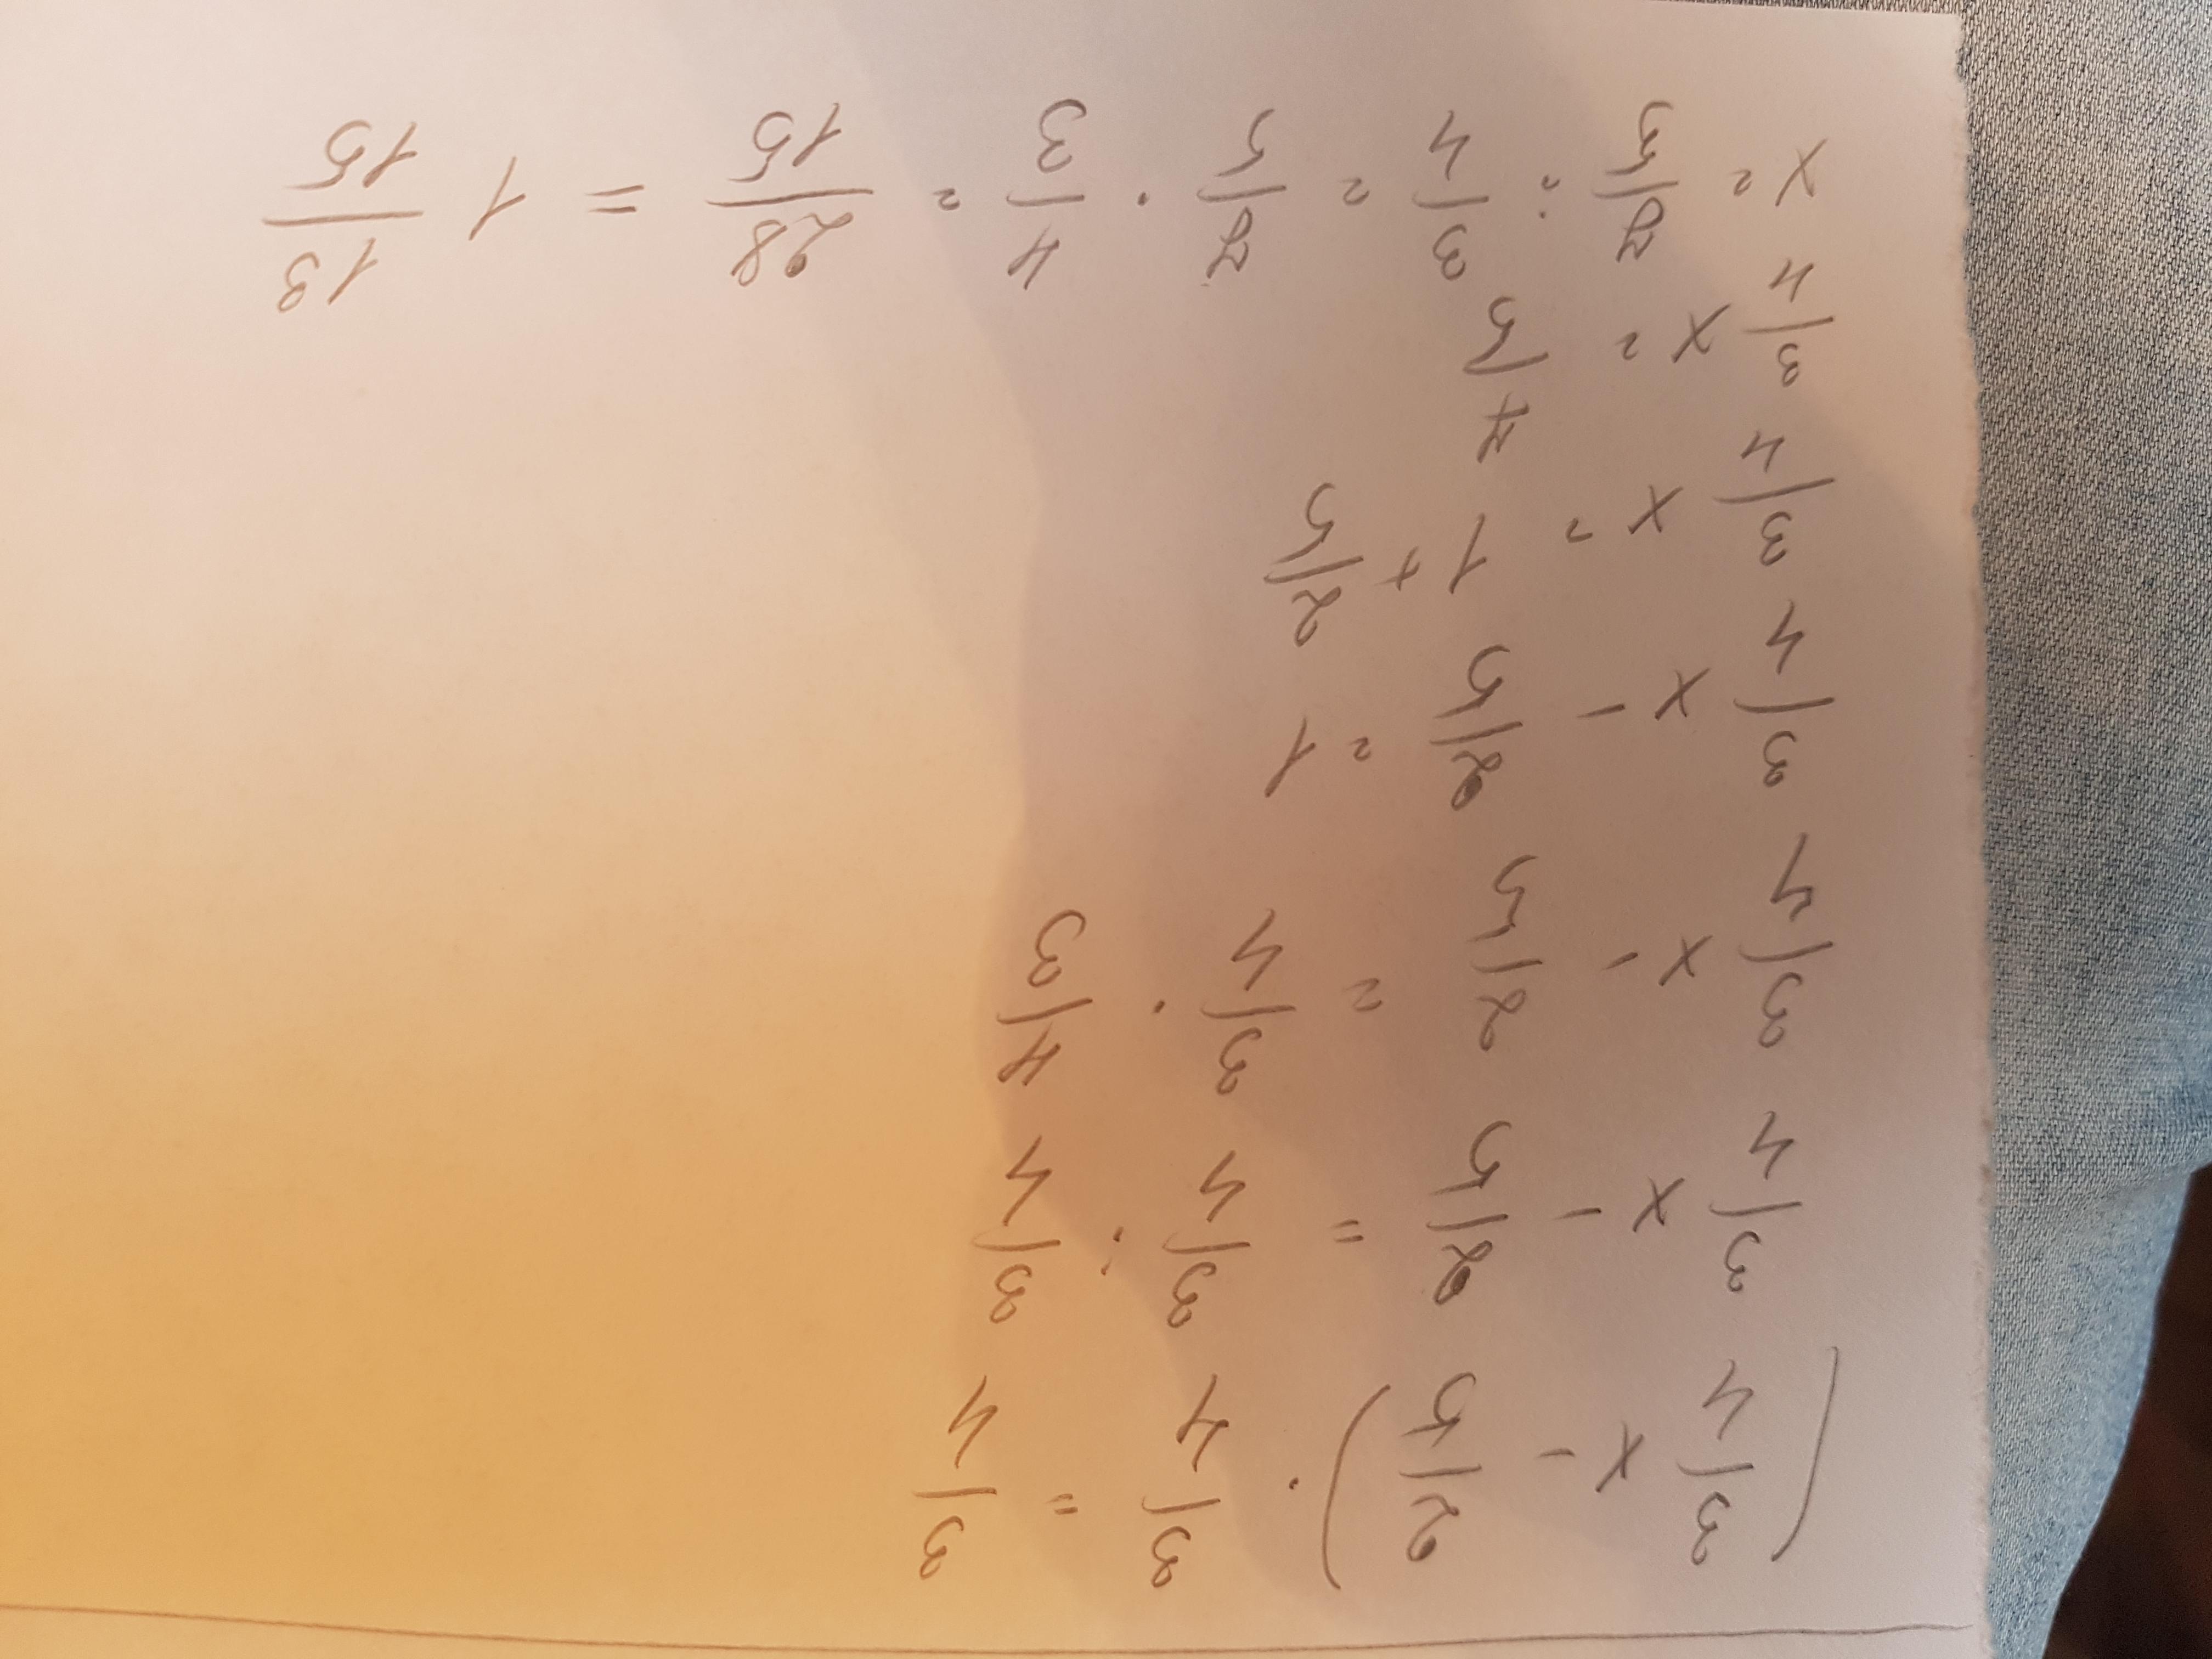 (3/4 x - 2/5) · 3/4 = 3/4
3/4 x - 2/5 = 3/4 : 3/4
3/4 x - 2/5 = 3/4 · 4/3
3/4 x - 2/5 = 1
3/4 x = 1 + 2/5
3/4 x = 7/5
x = 7/5 : 3/4 = 7/5 · 4/3 = 28/15 = 1 13/15